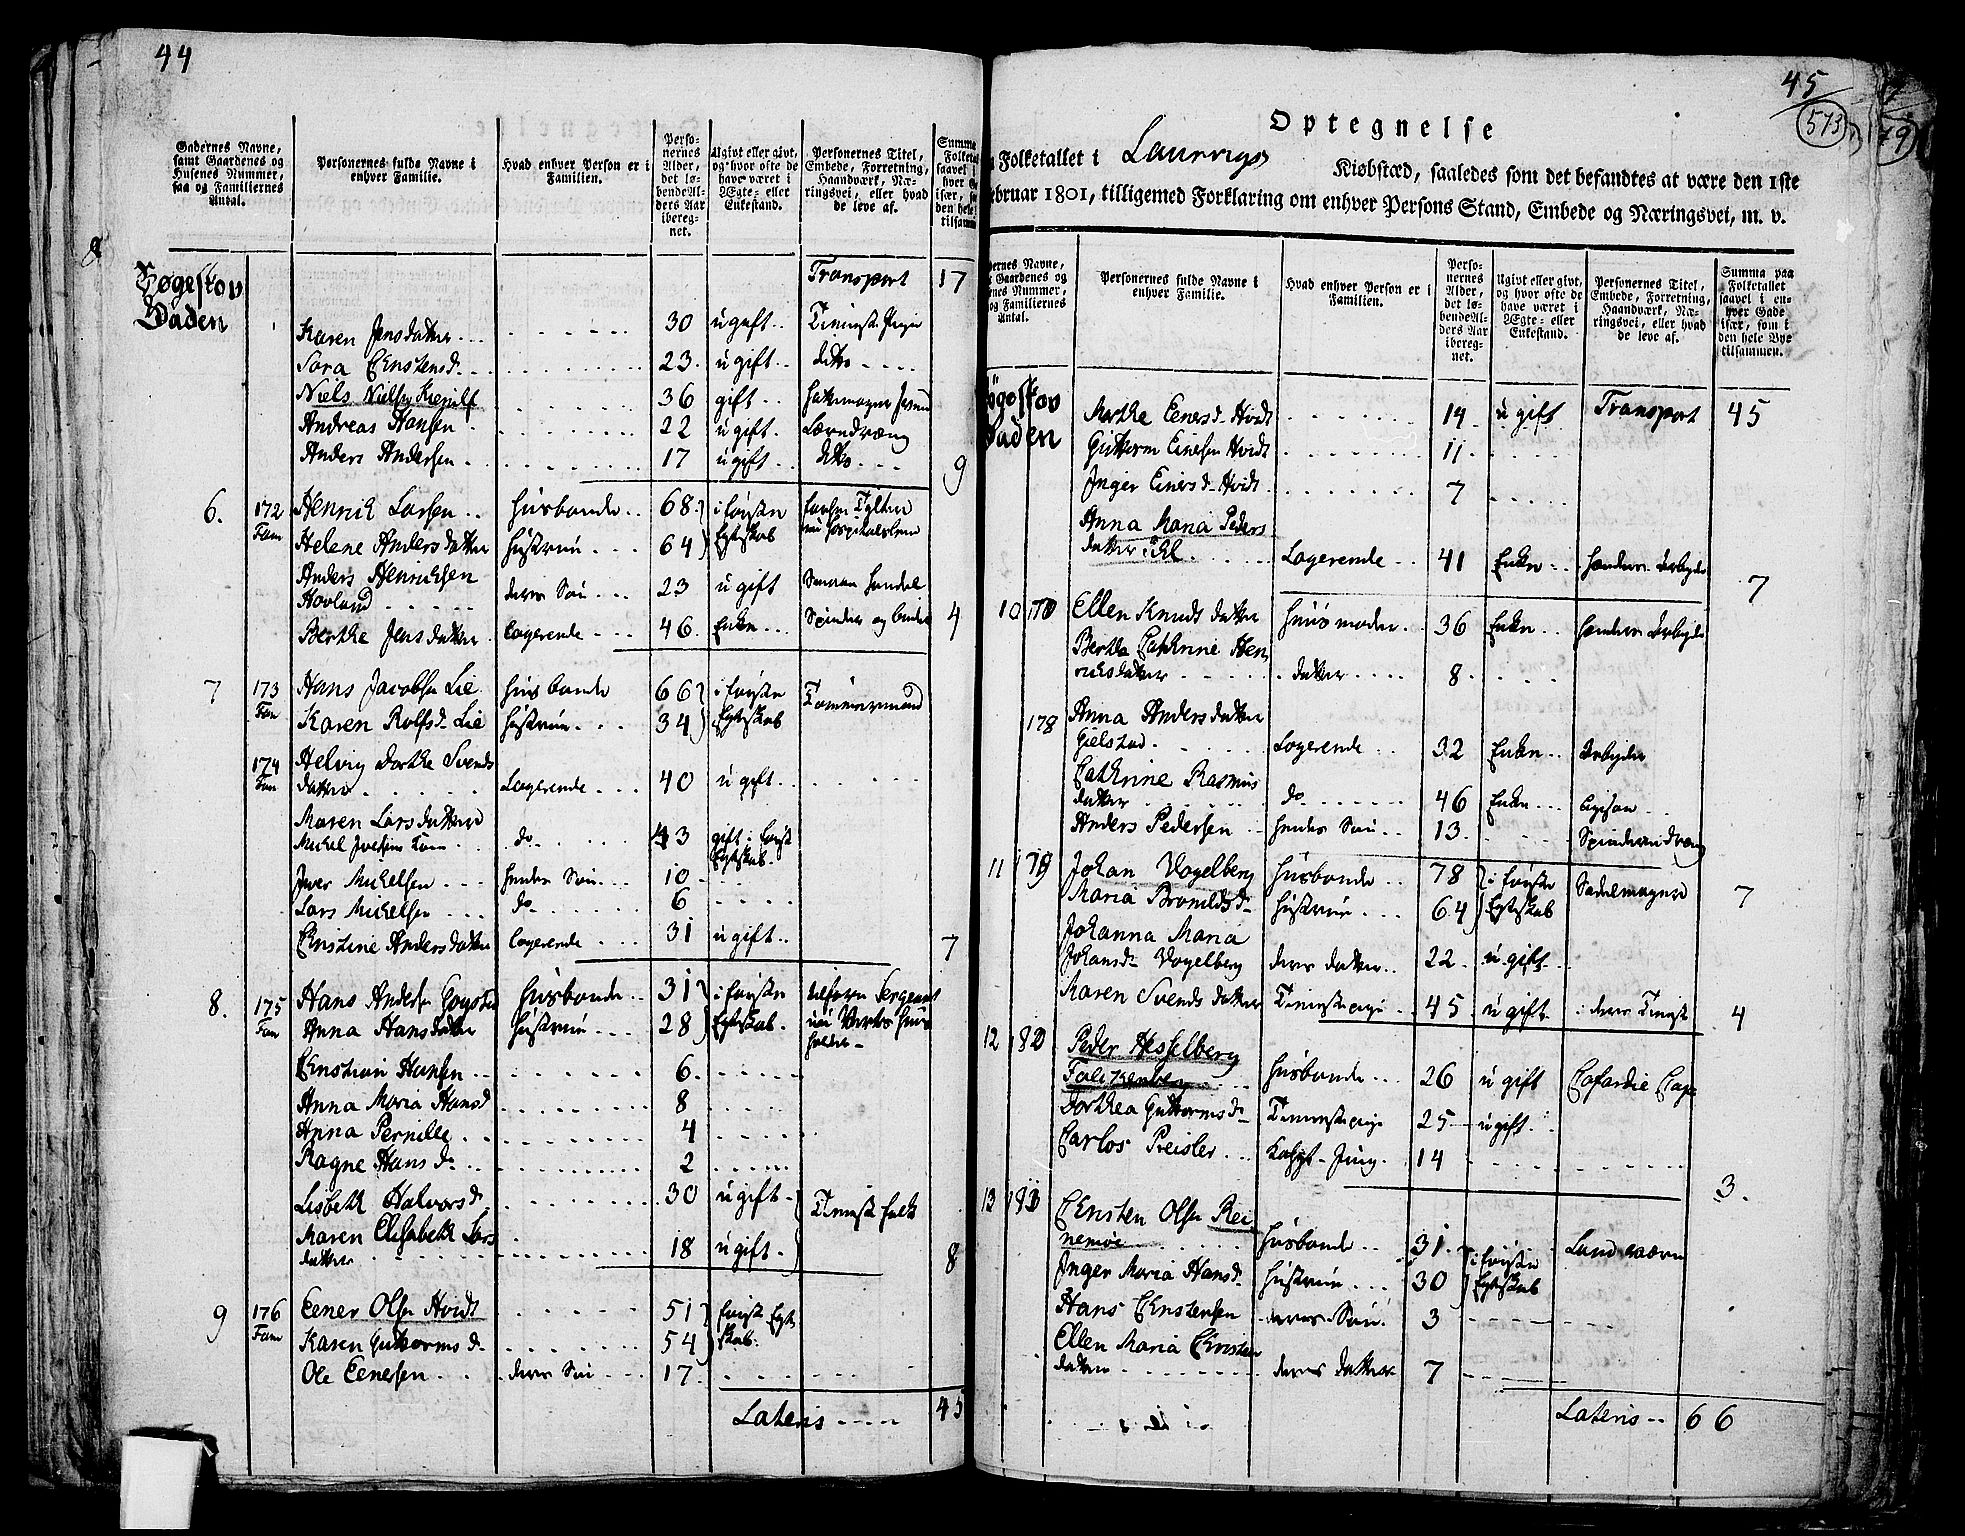 44
Gadernes Navne,
samt Gaardenes og
Husenes Nummer,
saa og Familiernes
Antal.
Personernes fulde Navne i
enhver Familie.
Hvad enhver Person er i
Familien.
Perso-
nernes
Alder,
det lø-
bende Al-
ders Aar
ibereg-
net.
Ugivt eller givt,
og hvor ofte de
have været i
Ægte- eller
Enkestand.
Personernes Titel,
Embede, Forretning,
Haandværk, Næ-
ringsvei, eller hvad
de leve af.
8
Bøgeskov
Baden
Transport 17
Karen Jensdatter 30 ugift Tieniste Pige
Sara Christensd. 23 ugift ditto
Niels Nielsen 36 gift
Andreas Hansen 22 ugift Læredræng
Anders Andersen 17 ugift ditto 9
6. 172 Fam Henrik Larsen Husbonde 68 i første
Helene Andersdatter Hustrue 64 Egteskab
Anders Henrichsen
Hovland deres Søn 23 ugift
Berthe Jensdatter Logerende 46 Enke Spinder og binder 4
7 173 Fam Hans Jacobsen Lie Husbonde 66 i første Tømmermand
Karen Rolfsd. Lie Hustrue 34 Egteskab
174 Fam Helvig Dorthe Svends
datter Logerende 40 ugift
Maren Larsdatter
Michel Iversens Kone do 43 gift i første
Egteskab
Iver Michelsen hendes Søn 10
Lars Michelsen do 6
Christine Andersdatter Logerende 31 ugift 7
8. 175 Fam Hans Andersen Husbonde 31 i første
Anna Hansdatter Hustrue 28 Egteskab
Christian Hansen 6
Anna Maria Hansd 8
Anna Pernille 4
Ragne Hansd. 2
Lisbeth Halvorsd 30 ugift Tieniste folk
Maren Elisabeth Lars
datter 18 ugift 8
9 176 Fam Eener Olsen Hvidt 51 første Egte
Karen Guthormsd. 54 skab
Ole Eenersen deres Søn 17
Lateris 45
45
573
Optegnelse
Folketallet i Laurvigs Kiøbstæd, saaledes som det befandtes at være den 1ste
ebruar 1801, tilligemed Forklaring om enhver Persons Stand, Embede og Næringsvei, m. v.
Personernes fulde Navne i
enhver Familie.
Hvad enhver Person er i
Familien.
Perso-
nernes
Alder,
det lø-
bende Al-
ders Aar
ibereg-
net.
Ugivt eller givt,
og hvor ofte de
have været i
Ægte- eller
Enkestand.
Personernes Titel,
Embede, Forretning,
Haandværk, Næ-
ringsvei, eller hvad
de leve af.
Summa paa
Folketallet
saavel i en-
hver Gade
især, som i
den hele By
tilsammen.
Transport 45
Marthe Eenersd. Hvidt 19 ugift
Guttorm Einersen Hvidt 11
Inger Einersd. Hvidt 7
Anna Maria Peders
datter Logerende 41 Enke Hænders Arbeyde 7
10 Ellen Knudsdatter Huusmoder 36 Enke Hænders Arbeyde
Berthe Cathrine Hen
richsdatter datter 8
178 Anna Andersdatter
Gielstad Logerende 32 Enke Arbeyder
Cathrine Rasmus
datter do 46 Enke
Anders Pedersen hendes Søn 13 7
11 179 Johan Vogelberg Husbonde 78 i første Sadelmager
Maria Bromildsd. Hustrue 64 Egteskab
Johanna Maria
Johansd. Vogelberg deres datter 22 ugift
Karen Svendsdatter Tienistepige 45 ugift i deres Tienist 4
12 Peder Hesselberg
Falckenberg Husbonde 26 ugift
Dorthea Guthormsd. Tienistepige 25 ugift
Carlos Preisler 14 3.
13 Christen Olsen Rei
nemoe Husbonde 31 i første
Inger Maria Hansd. Hustrue 30 Egteskab
Hans Christensen deres Søn 3
Ellen Maria Christen
datter deres datter 7
Lateris 66